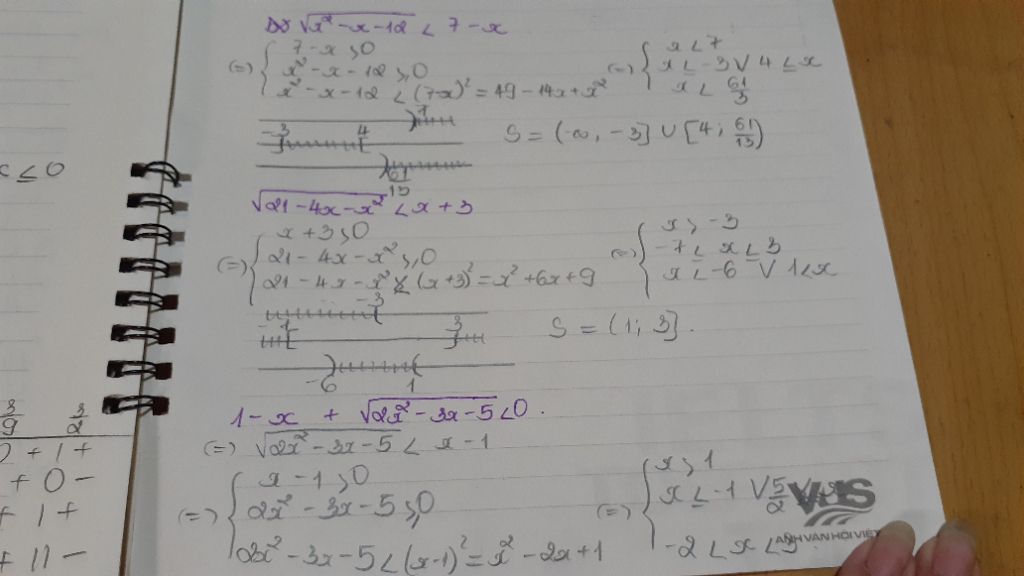 √(x² - x - 12) < 7 - x
(=) { 7 - x > 0
x² - x - 12 ≥ 0
x² - x - 12 < (7-x)² = 49 - 14x + x²
(=) { x < 7
x ≤ -3 V 4 ≤ x
x < 61/3
7
-3 4
61/13
S = (-∞, -3] ∪ [4; 61/13)
√(21 - 4x - x²) < x + 3
(=) { x + 3 > 0
21 - 4x - x² ≥ 0
21 - 4x - x² < (x+3)² = x² + 6x + 9
(=) { x > -3
-7 ≤ x ≤ 3
x < -6 V 1 < x
-3
-7 3
-6 1
S = (1; 3].
1 - x + √(2x² - 3x - 5) < 0.
(=) √(2x² - 3x - 5) < x - 1
(=) { x - 1 > 0
2x² - 3x - 5 ≥ 0
2x² - 3x - 5 < (x-1)² = x² - 2x + 1
(=) { x > 1
x ≤ -1 V 5/2
-2 < x < 3
VUS
ANH VĂN HỘI VIỆT
≤ 0
3/9 3/2
0 + 1 +
+ 0 -
+ 1 +
+ 11 -